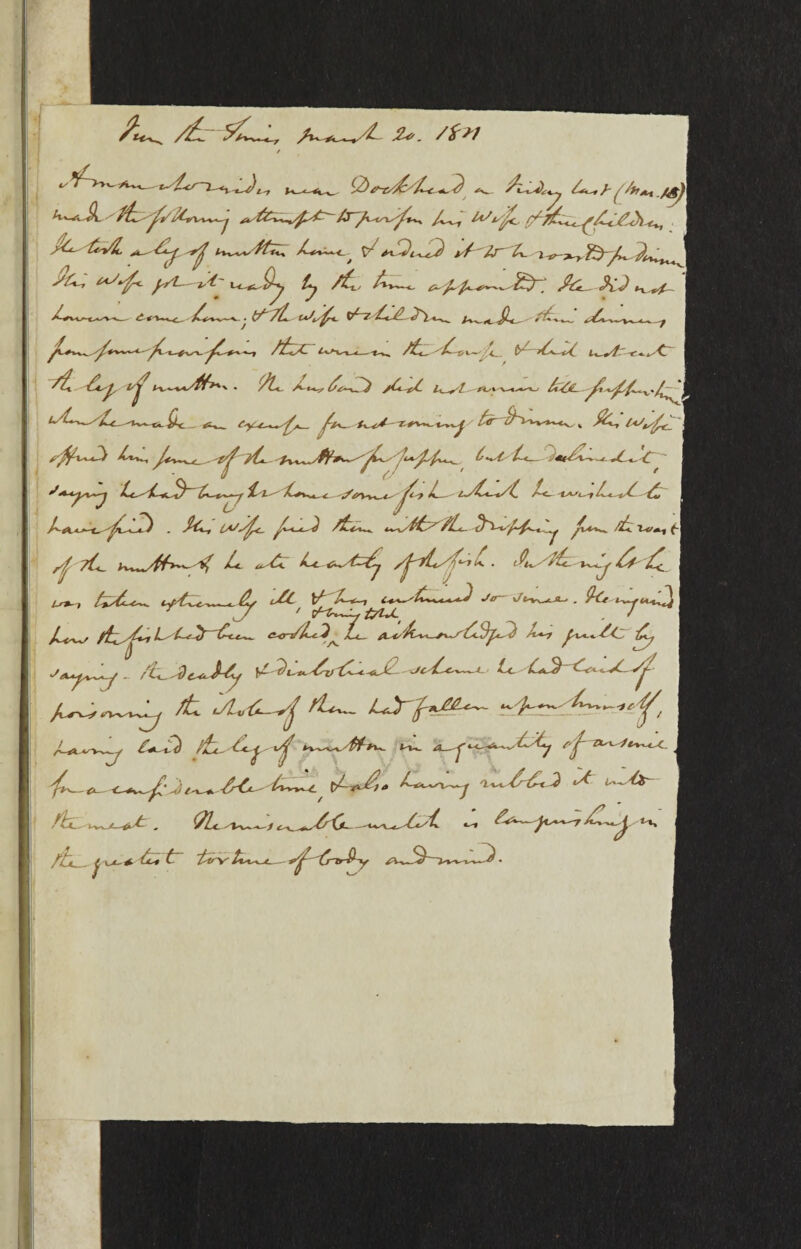 From the Times, March 20. 1821
A man who resides near Dockhead on Friday last (Mar. 16)
made the following attempt to poison his Wife & three Children:
He took a leg of mutton home, & ordered it to be roasted for dinner
His Wife got it ready by the time appointed. He did not
however come home; & the wife & children made their dinners
from some provisions that were in the house, & did not cut
the leg of mutton. The husband did not arrive till supper-time,
when he made an excuse for not coming to dinner. His Wife
offered him some of the mutton for supper, but he declined it,
saying he had brought home some fish which he wished to
have fried. His Wife fried them with the dripping from the roast
of the mutton & he ate heartily of the fish. In the night he
was taken extremely ill, & has continued so since. He inquired
how the fish had been cooked, & being told, he acknowledged his guilt by
saying – the deadly & diabolical scheme he had laid of
poisoning the whole of them had fallen upon himself,
having laid the leg of mutton in a quantity of arsenic
for a considerable time, & also having rubbed it into
the meat. The miserable wretch is languishing in
the greatest torture of body and mind.